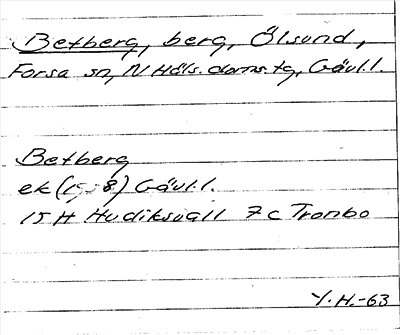 Betberg, berg, Ölsund,
Forsa sn, N Häls. doms. tg, Gävl. l.
Betberg
ek Gävl. l.
15 H Hudiksvall 7 c Trombo
Y. H. -63